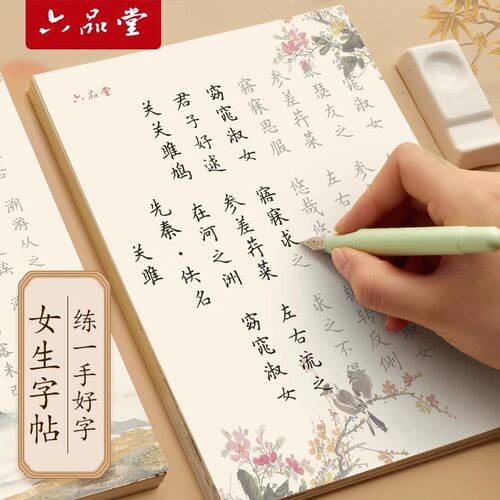 六品堂
六品堂
关雎
先秦·佚名
关关雎鸠
在河之洲
君子好逑
窈窕淑女
参差荇菜
窈窕淑女
寤寐求之
左右流之
寤寐思服
求之不得
参差荇菜
悠哉
转反侧
瑟友之
左右
淑女
溯游从之
练一手好字
女生字帖